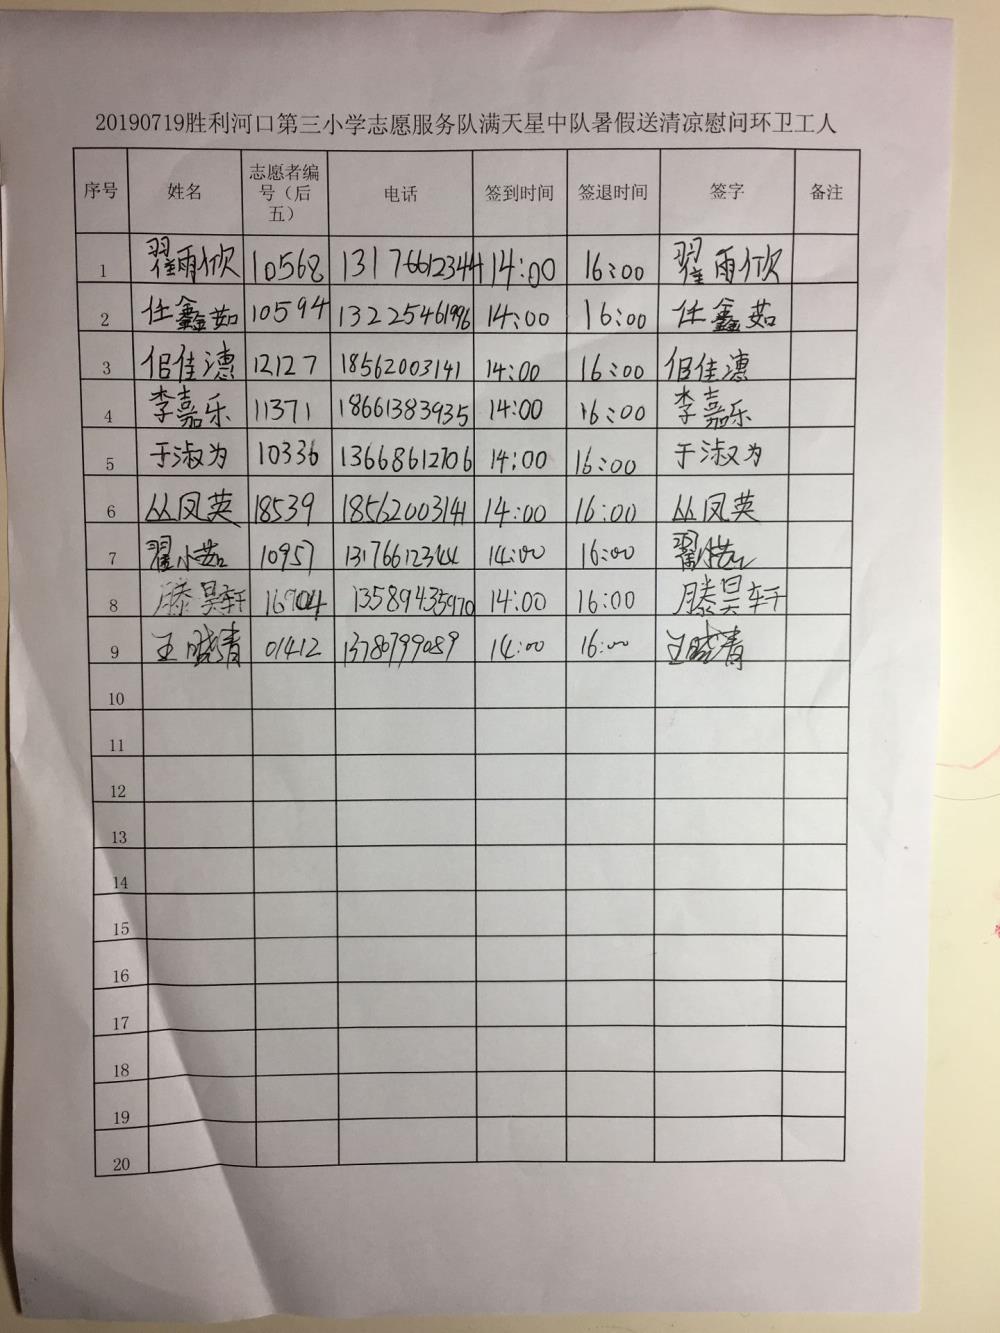 20190719胜利河口第三小学志愿服务队满天星中队暑假送清凉慰问环卫工人
序号 姓名 志愿者编号（后五） 电话 签到时间 签退时间 签字 备注
1 翟雨欣 10568 13176612344 14:00 16:00 翟雨欣
2 任鑫茹 10594 13225461996 14:00 16:00 任鑫茹
3 佀佳潓 12127 18562003141 14:00 16:00 佀佳潓
4 李嘉乐 11371 18661383935 14:00 16:00 李嘉乐
5 于淑为 10336 13668612706 14:00 16:00 于淑为
6 丛凤英 18539 18562003141 14:00 16:00 丛凤英
7 翟小茹 10957 13176612344 14:00 16:00 翟小茹
8 滕昊轩 16904 13589435970 14:00 16:00 滕昊轩
9 王晓清 01412 13780799089 14:00 16:00 王晓清
10
11
12
13
14
15
16
17
18
19
20